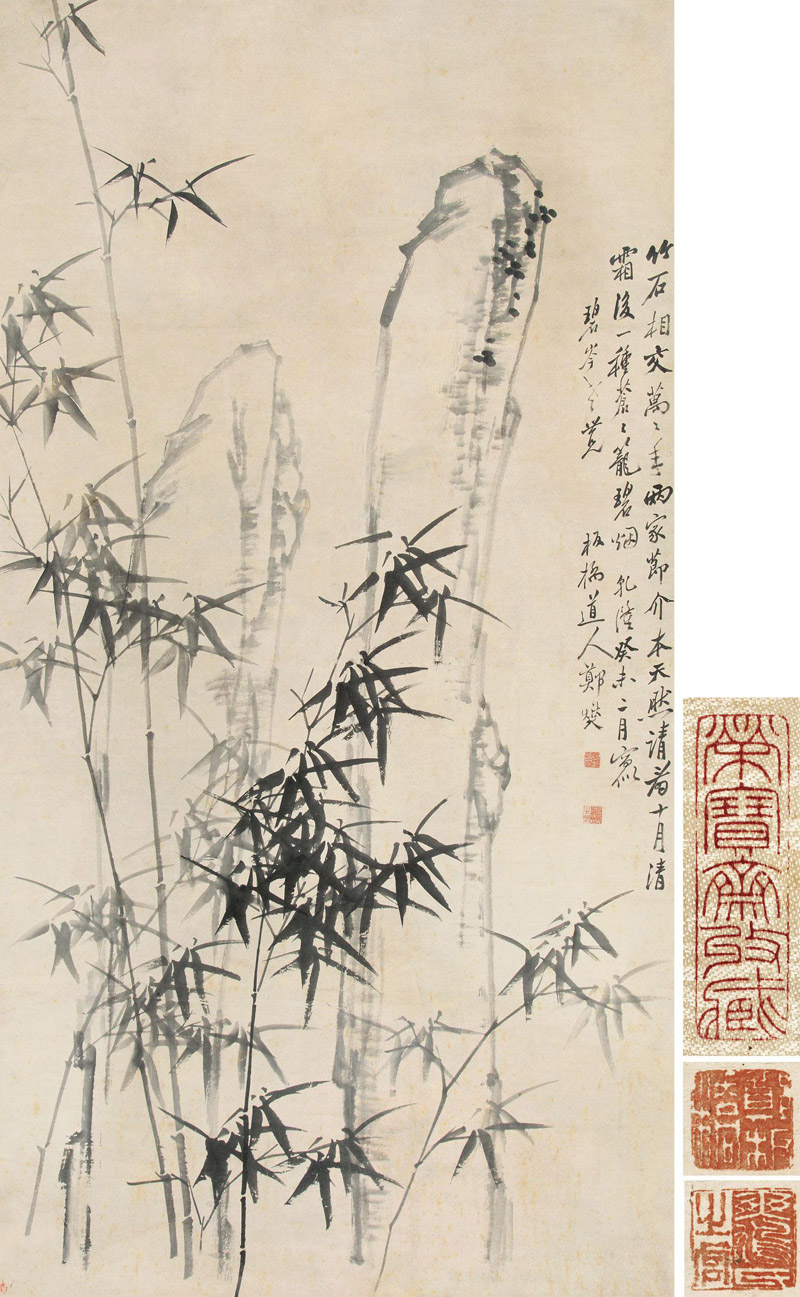 竹石相交萬〻年兩家節介本天然請看十月清
霜後一種蒼〻籠碧烟 乾隆癸未二月寫似
碧岑 覽 板橋道人鄭燮
榮寶齋收藏
爽鳩氏之官